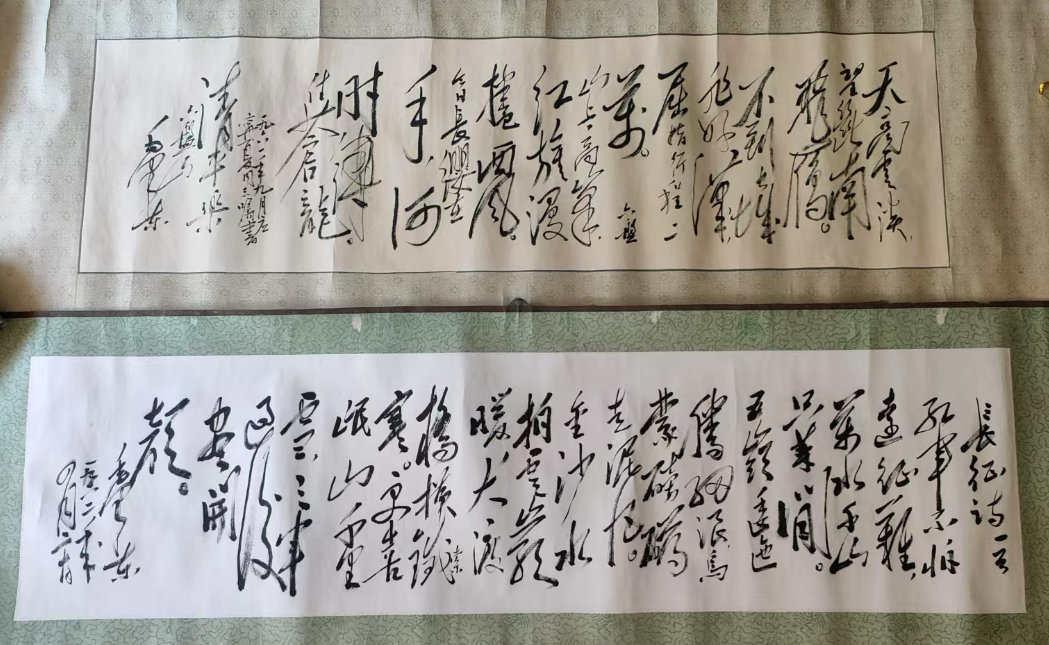 天高雲淡,
望斷南
飛雁。
不到長城
非好漢,
屈指行程二
萬。六盤
山上高峰,
紅旗漫
捲西風。
今日長纓在
手,何
時縛
住蒼龍。
一九六一年九月應
寧夏同志囑書
清平樂
六盤山
毛澤東
長征詩一首
紅軍不怕
遠征難,
萬水千山
只等閒。
五嶺逶迤
騰細浪烏
蒙磅礴
走泥丸。
金沙水
拍雲崖
暖,大渡
橋橫鐵索
寒。更喜
岷山千里
雪,三軍
過後
盡開
顏。
毛澤東
一九六二年
四月二十日